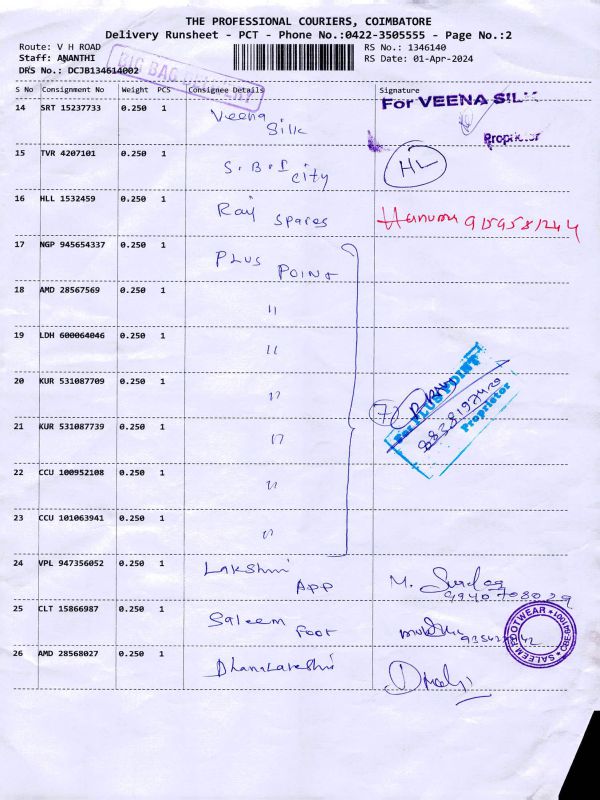 THE PROFESSIONAL COURIERS, COIMBATORE
Delivery Runsheet - PCT - Phone No.:0422-3505555 - Page No.:2
Route: V H ROAD
RS No.: 1346140
Staff: ANANTHI
RS Date: 01-Apr-2024
DRS No.: DCJB134614002
BIG BAG DELIVERY
S No Consignment No Weight PCS Consignee Details Signature
14 SRT 15237733 0.250 1 Veena Silk
For VEENA SILK
Proprietor
15 TVR 4207101 0.250 1 S.B.I city HL
16 HLL 1532459 0.250 1 Raj Spares 9159581244
17 NGP 945654337 0.250 1 PLUS POINT
18 AMD 28567569 0.250 1 11
19 LDH 600064046 0.250 1 11
20 KUR 531087709 0.250 1 11
7
For PLUS POINT
Proprietor
21 KUR 531087739 0.250 1 11
22 CCU 100952108 0.250 1 11
23 CCU 101063941 0.250 1 11
24 VPL 947356052 0.250 1 Lakshmi APP M.
9940708029
25 CLT 15866987 0.250 1 Saleem Foot
SALEEM FOOTWEAR
26 AMD 28568027 0.250 1 Dhanalakshmi